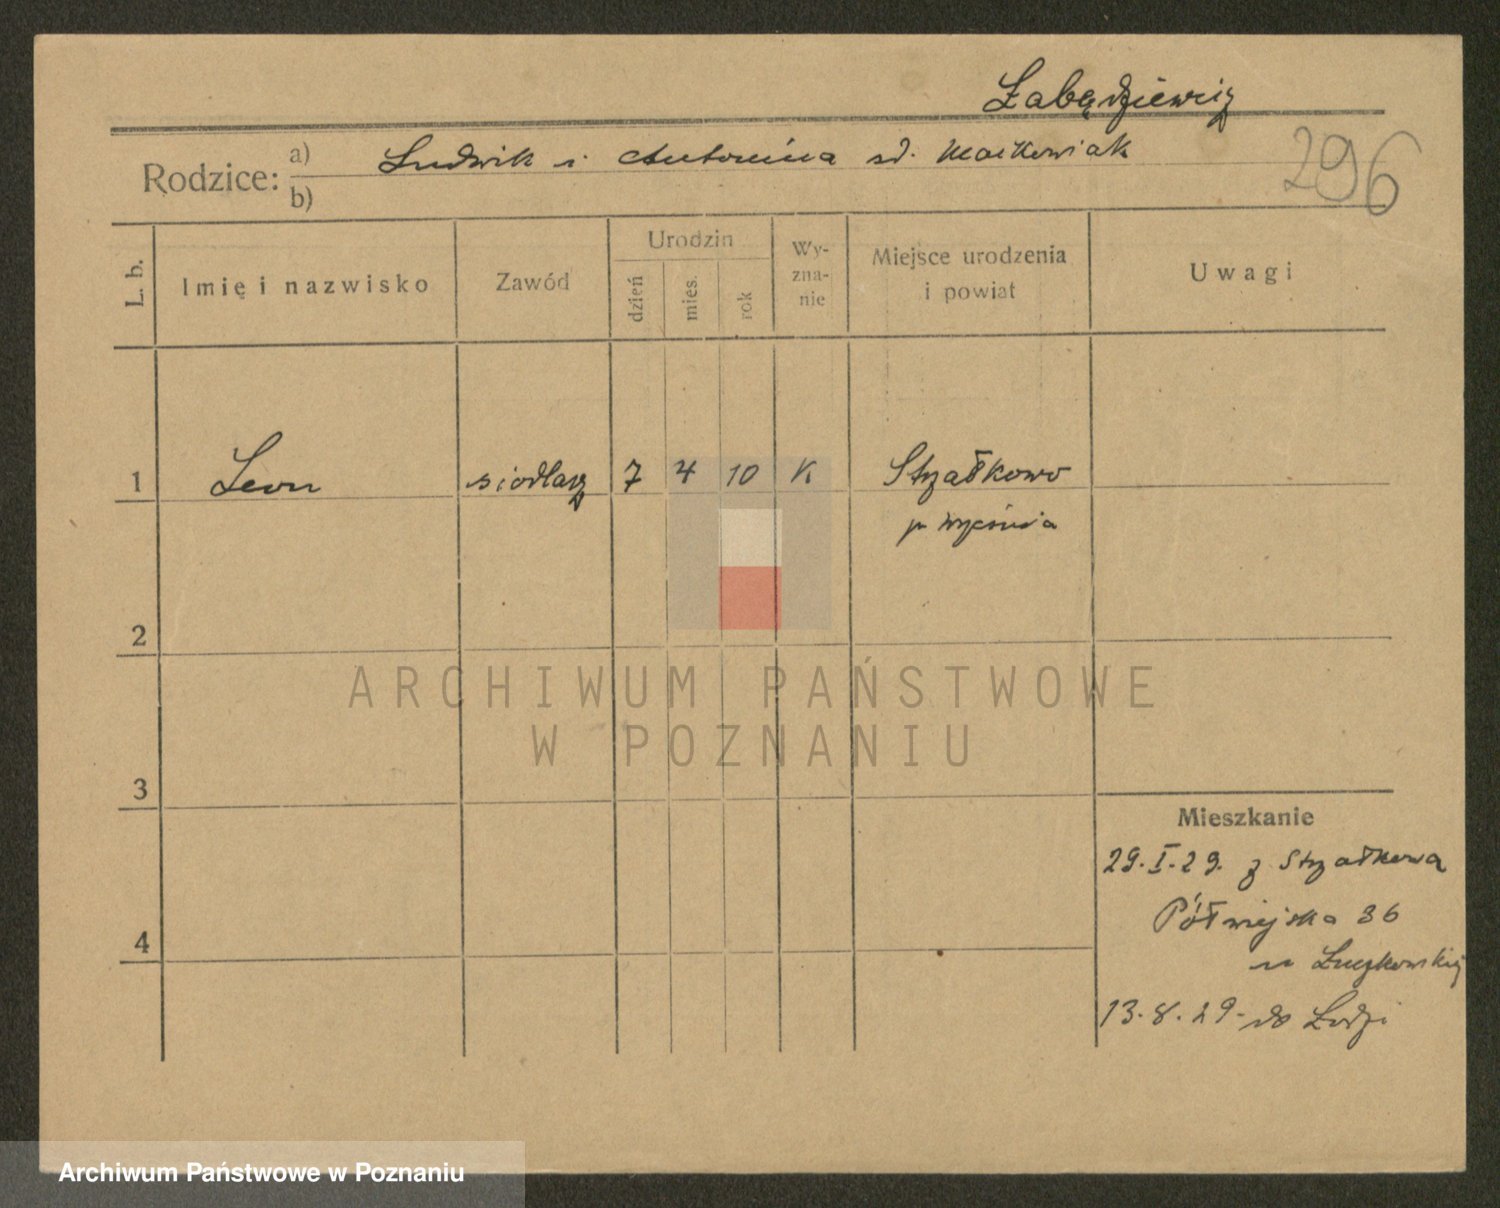 Łabędziewicz
Rodzice: a) Ludwik i Antonina zd. Maćkowiak
b)
296
L. b.
Imię i nazwisko
Zawód
Urodzin
dzień
mies.
rok
Wy-
zna-
nie
Miejsce urodzenia
i powiat
Uwagi
1 Leon siodlarz 7 4 10 K Strzałkowo
p Września
2
ARCHIWUM PAŃSTWOWE
W POZNANIU
3
Mieszkanie
29.I.29. z Strzałkowa
Półwiejska 36
4
u Łuczkowskiej
13.8.29 - do Łodzi
Archiwum Państwowe w Poznaniu